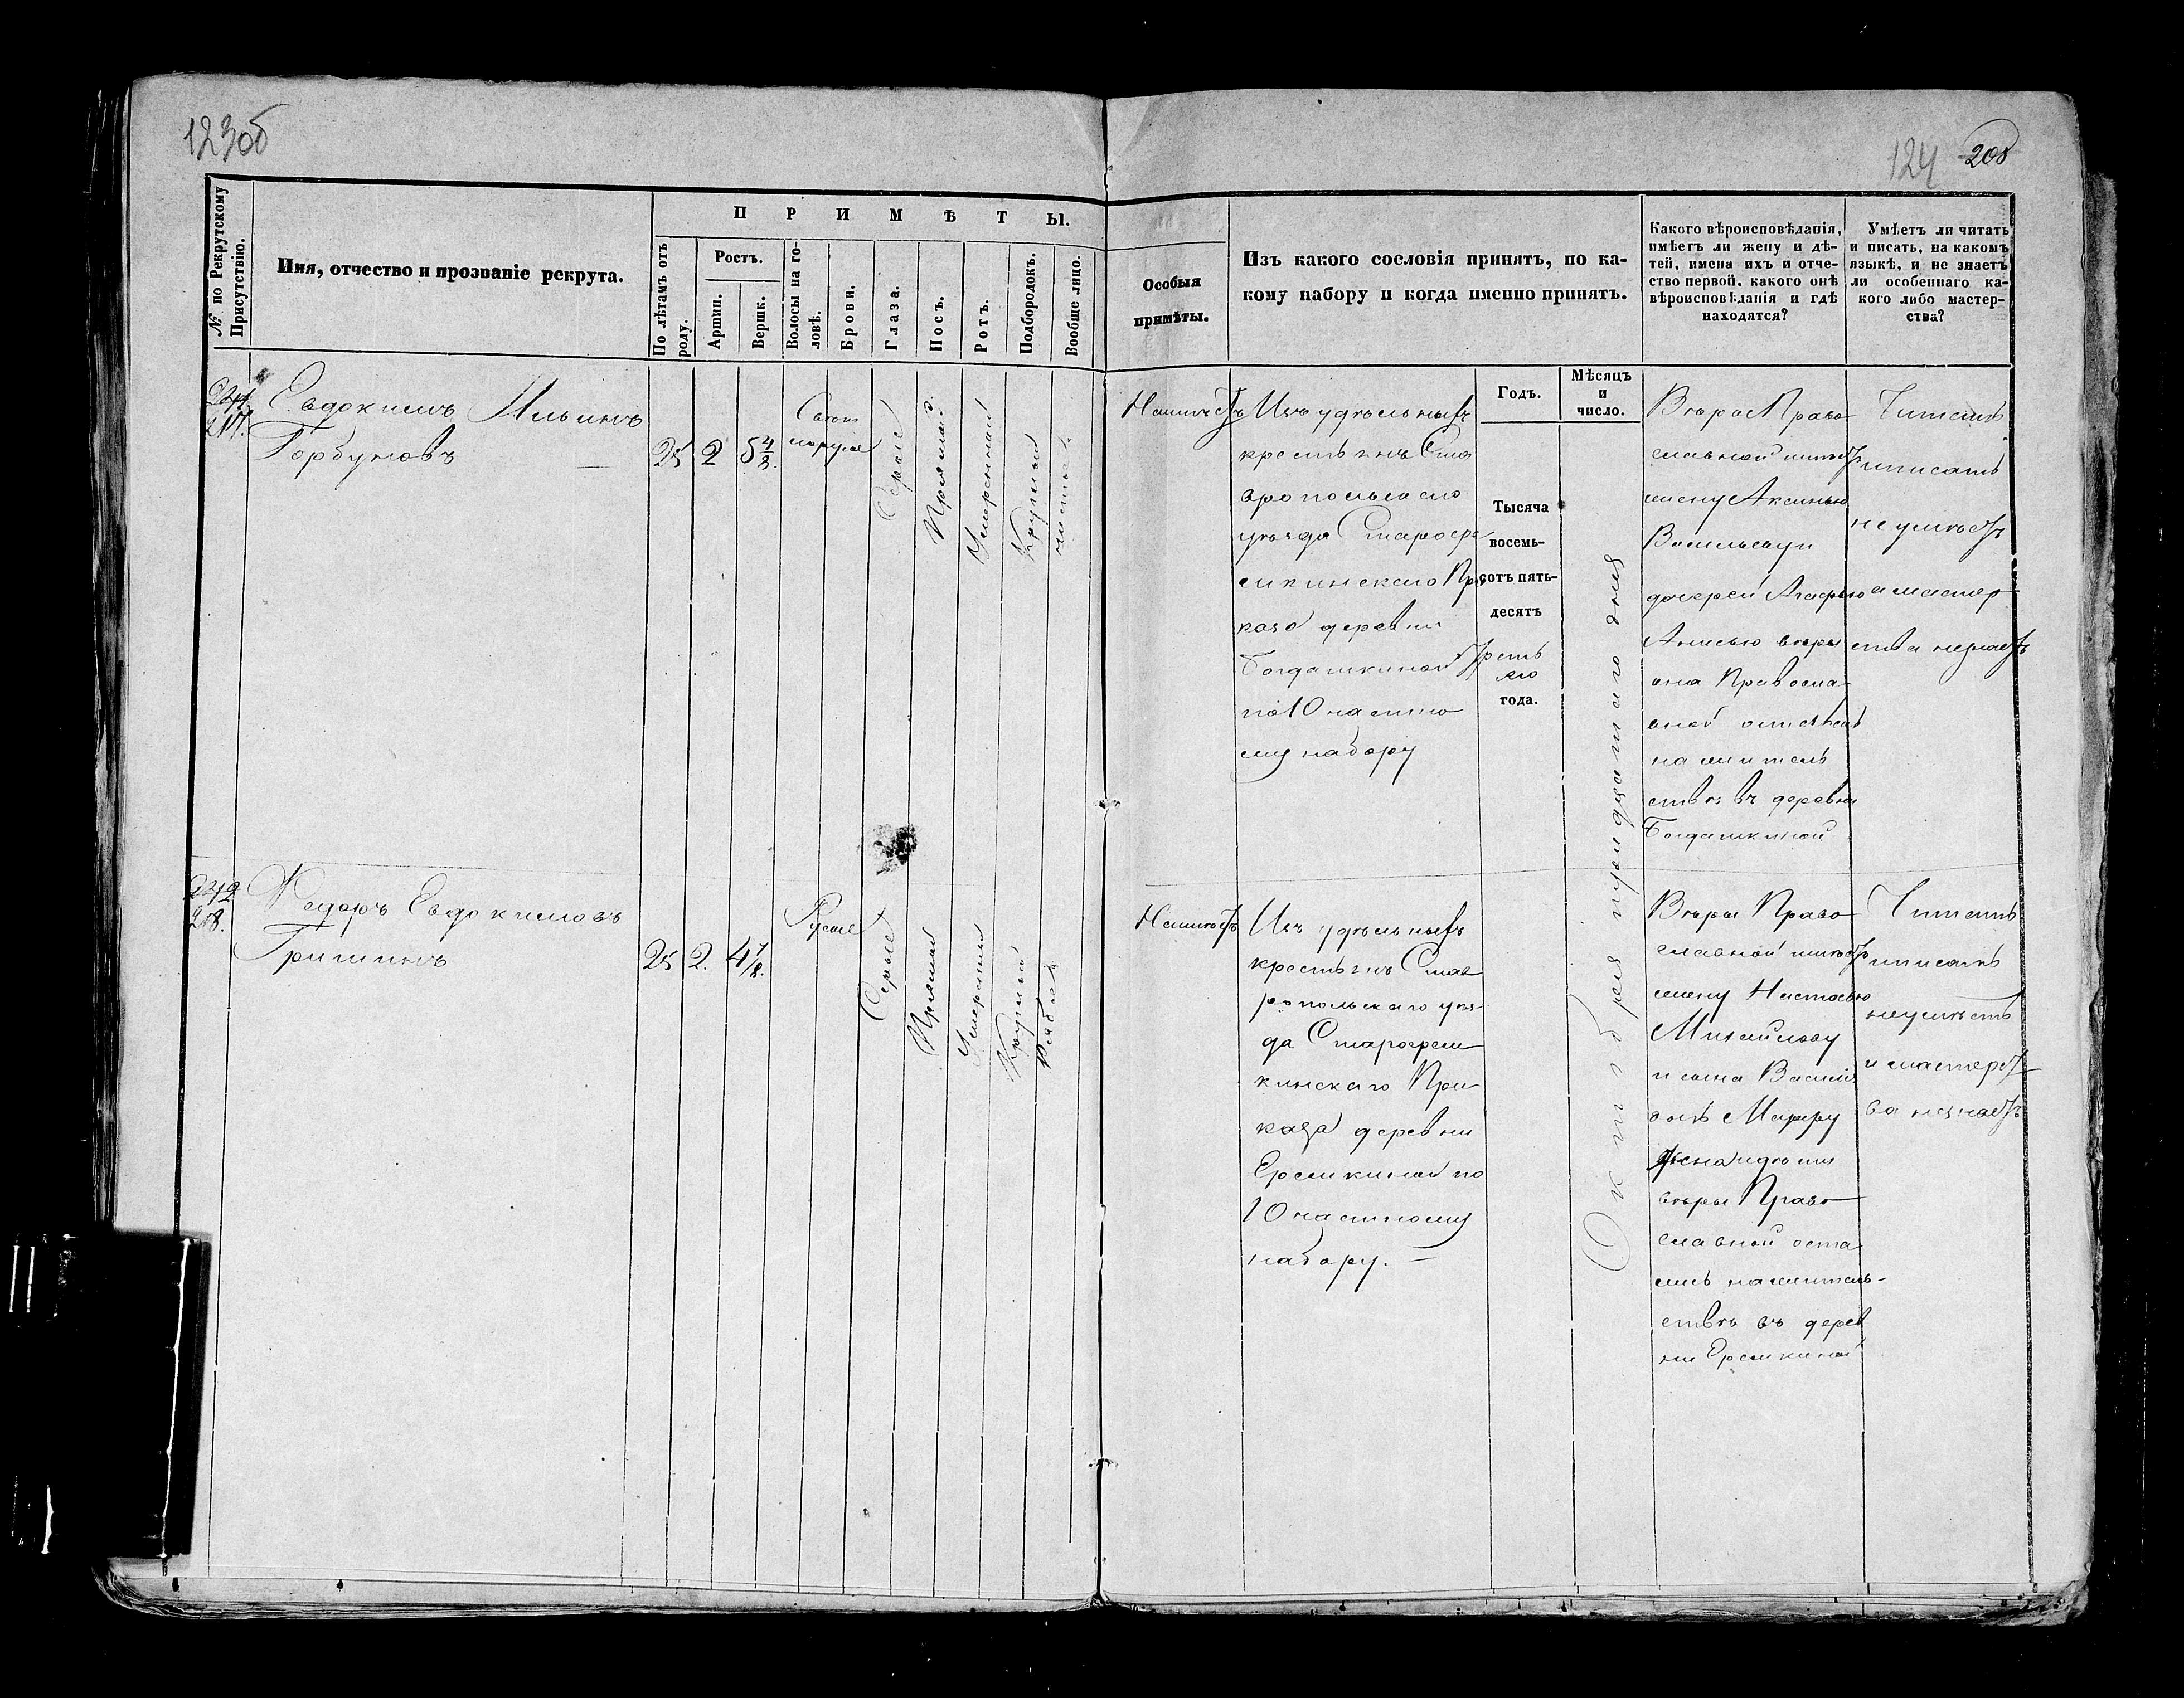 123об
124 208
№ по Рекрутскому Присутствію.
Имя, отчество и прозваніе рекрута.
ПРИМѢТЫ.
По лѣтамъ отъ роду.
Ростъ.
Аршин.
Вершк.
Волосы на головѣ.
Брови.
Глаза.
Носъ.
Ротъ.
Подбородокъ.
Вообще лицо.
Особыя
примѣты.
Изъ какого сословія принятъ, по ка-
кому набору и когда именно принятъ.
Какого вѣроисповѣданія,
имѣетъ ли жену и дѣ-
тей, имена ихъ и отче-
ство первой, какого онѣ
вѣроисповѣданія и гдѣ
находятся?
Умѣетъ ли читать
и писать, на какомъ
языкѣ, и не знаетъ
ли особеннаго ка-
кого либо мастер-
ства?
Годъ.
Мѣсяцъ
и
число.
Евдокимъ Ильинъ
Горбуновъ
25 2
Свѣтло
русые
Серые
Прямой
Умеренный
Круглый
чистое
Неимѣетъ
Изъ удѣльныхъ
крестьянъ Ста
вропольскаго
уѣзда Старосре
мкинскаго При
каза деревни
Богдашкиной
по 10 частно
му набору
Тысяча
восемь-
сотъ пять-
десятъ
третьяго
года.
Октября тридцатаго дня
Веры Право
славной имѣетъ
жену Аксинью
Васильеву
дочерей Агафью
Анисью веры
она Правосла
вной
на жительствѣ въ деревни
Богдашкиной
Читать
и писать
не умѣетъ
а мастер
ства незнаетъ
Федоръ Евдокимовъ
Гришинъ
25 2. 4 1/8.
Русые
Серые
Прямой
Умеренный
Круглый
Рябое
Неимѣетъ
Изъ удѣльныхъ
крестьянъ Став
ропольскаго уѣз-
да Староерем
кинскаго При
каза деревни
Еремкиной по
10 частному
набору. —
Веры Право
славной имѣетъ
жену Настасью
Михайлову
и сына Василія
дочь Марфу
жена и дѣти
веры Право
славной оста
лись на житель-
ствѣ въ дерев
ни Еремкиной
Читать
и писать
неумѣетъ
и мастерст
ва незнаетъ